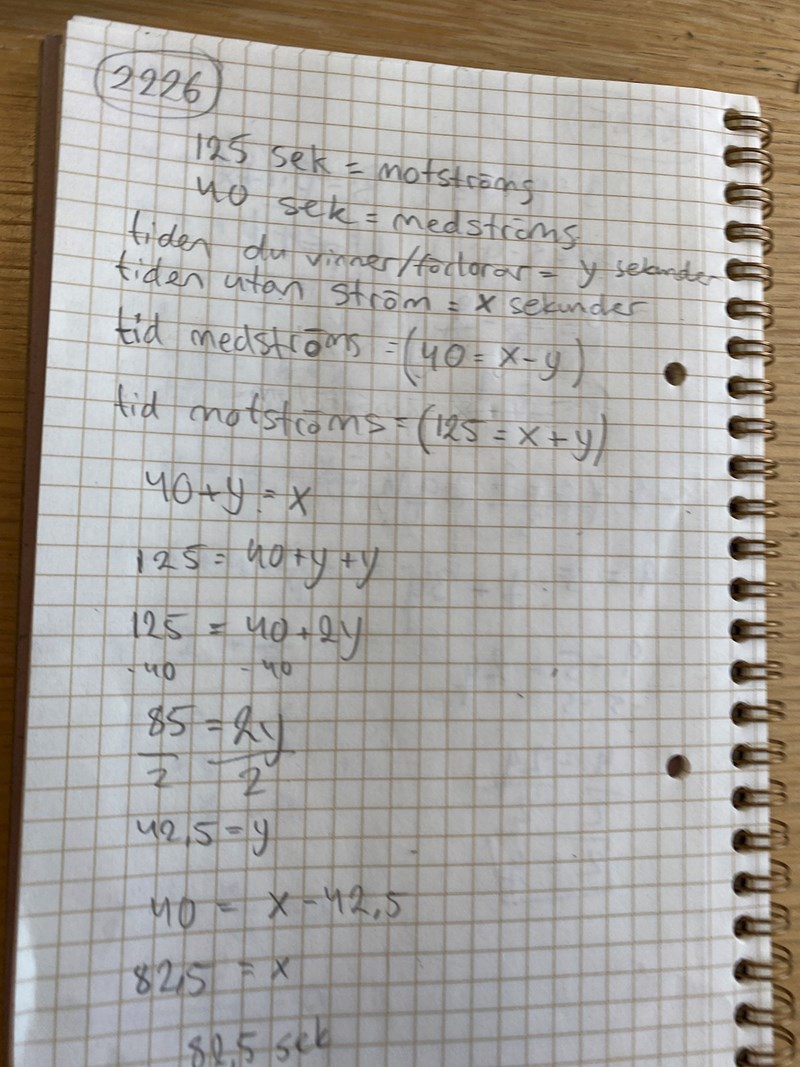 2226
125 sek = motströms
40 sek = medströms
tiden du vinner/förlorar = y sekunder
tiden utan ström = x sekunder
tid medströms = (40 = x-y)
tid motströms = (125 = x+y)
40+y = x
125 = 40+y+y
125 = 40+2y
-40 -40
85 = 2y
2 2
42,5 = y
40 = x-42,5
82,5 = x
82,5 sek